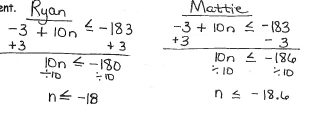 ent.
Ryan
-3 + 10n ≤ -183
+3 +3
10n ≤ -180
÷10 ÷10
n ≤ -18
Mattie
-3 + 10n ≤ -183
+3 - 3
10n ≤ -186
÷10 ÷10
n ≤ -18.6